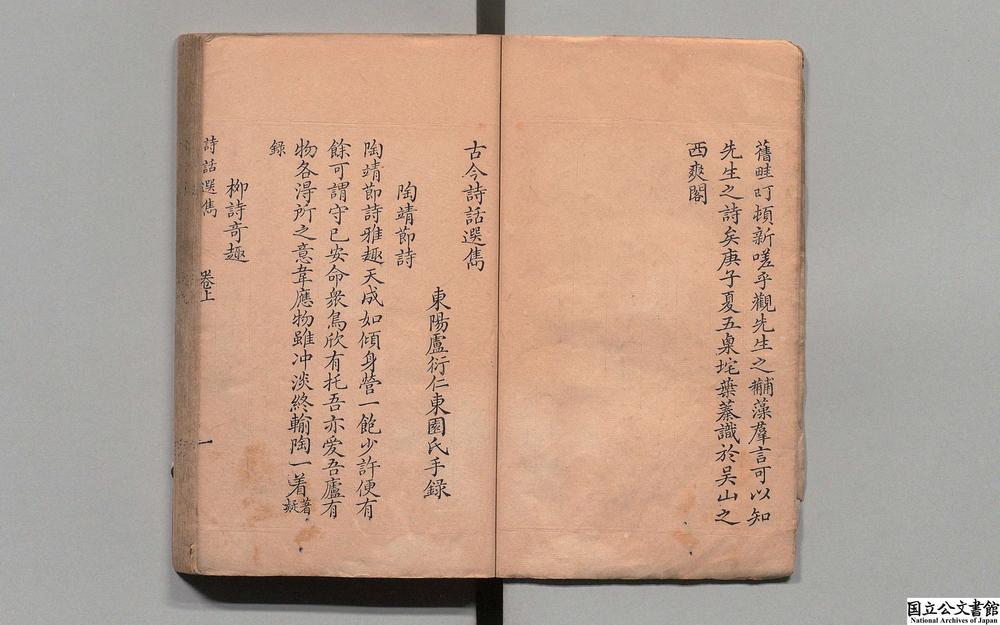 舊畦町頓新嗟乎觀先生之黼藻羣言可以知
先生之詩矣庚子夏五臬垞葉蓁識於吴山之
西爽閣
古今詩話選雋
東陽盧衍仁東園氏手録
陶靖節詩
陶靖節詩雅趣天成如傾身營一飽少許便有
餘可謂守已安命衆鳥欣有托吾亦愛吾廬有
物各得所之意韋應物雖冲淡終輸陶一着
録
柳詩奇趣
詩話選雋
卷上
一
国立公文書館
National Archives of Japan